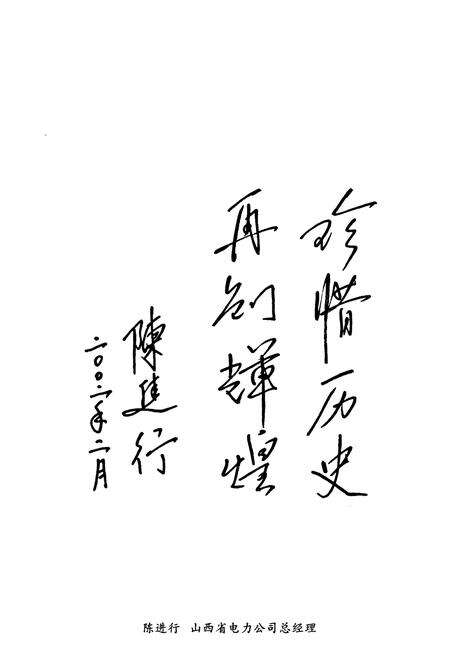 珍惜历史
再创辉煌
陳進行
二〇〇二年二月
陈进行 山西省电力公司总经理